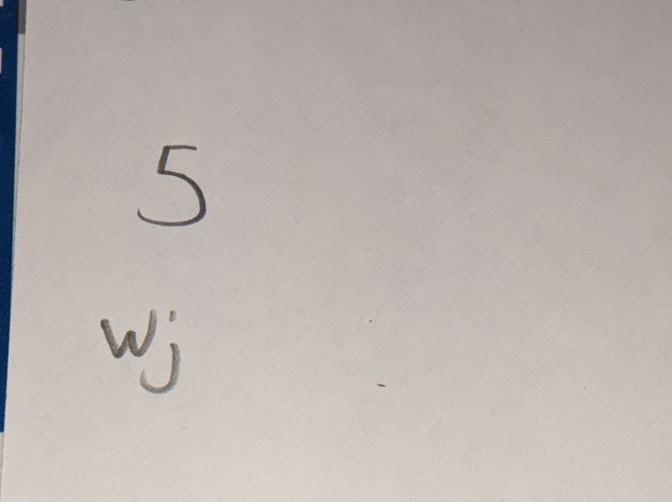 5
wj